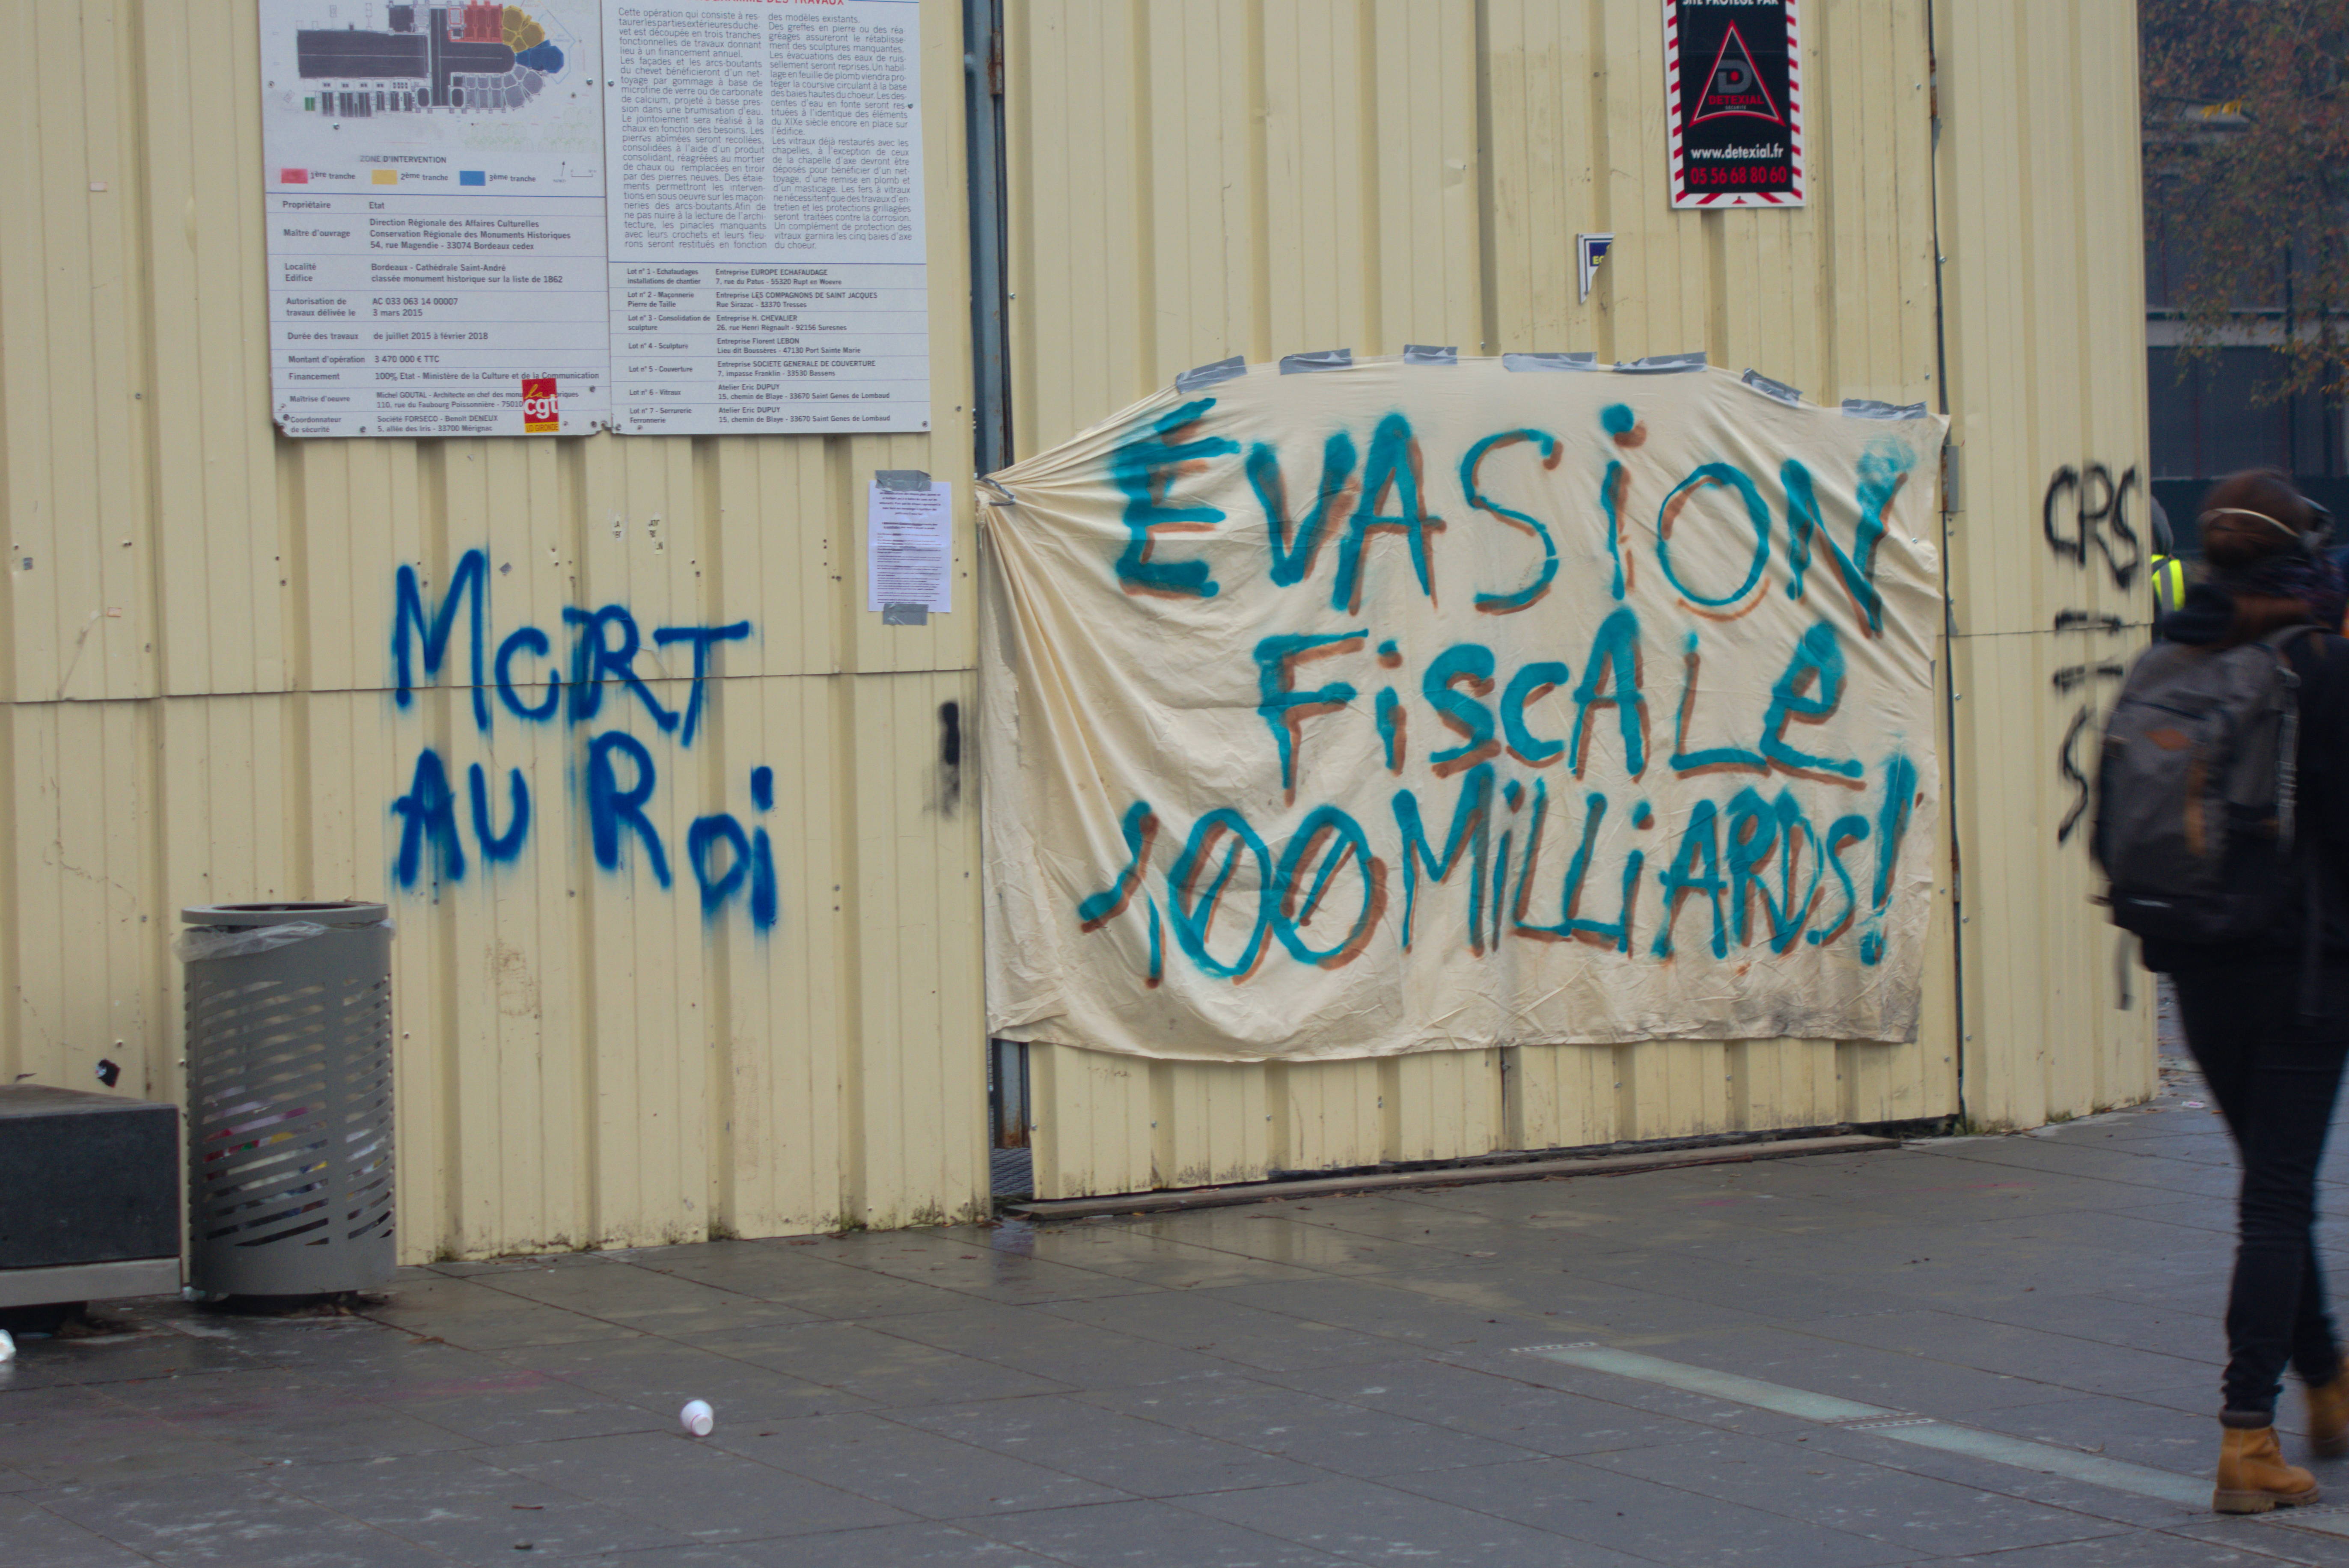 PROGRAMME DES TRAVAUX
ZONE D'INTERVENTION
1ère tranche
2ème tranche
3ème tranche
Propriétaire Etat
Maître d'ouvrage
Direction Régionale des Affaires Culturelles
Conservation Régionale des Monuments Historiques
54, rue Magendie - 33074 Bordeaux cedex
Localité Bordeaux - Cathédrale Saint-André
Edifice classée monument historique sur la liste de 1862
Autorisation de AC 033 063 14 00007
travaux délivrée le 3 mars 2015
Durée des travaux de juillet 2015 à février 2018
Montant d'opération 3 470 000 € TTC
Financement 100% Etat - Ministère de la Culture et de la Communication
Maîtrise d'oeuvre
Michel GOUTAL - Architecte en chef des
110, rue du Faubourg Poissonnière - 7501
Coordonnateur Société FORSECO - Benoît DENEUX
de sécurité 5, allée des Iris - 33700 Mérignac
la
cgt
UD GIRONDE
Cette opération qui consiste à res-
taurer les parties extérieures du che-
vet est découpée en trois tranches
fonctionnelles de travaux donnant
lieu à un financement annuel.
Les façades et les arcs-boutants
du chevet bénéficieront d'un net-
toyage par gommage à base de
microfine de verre ou de carbonate
de calcium, projeté à basse pres-
sion dans une brumisation d'eau.
Le jointoiement sera réalisé à la
chaux en fonction des besoins. Les
pierres abîmées seront recollées,
consolidées à l'aide d'un produit
consolidant, réagréées au mortier
de chaux ou remplacées en tiroir
par des pierres neuves. Des étaie-
ments permettront les interven-
tions en sous oeuvre sur les maçon-
neries des arcs-boutants.Afin de
ne pas nuire à la lecture de l'archi-
tecture, les pinacles manquants
avec leurs crochets et leurs fleu-
rons seront restitués en fonction
des modèles existants.
Des greffes en pierre ou des réa-
gréages assureront le rétablisse-
ment des sculptures manquantes.
Les évacuations des eaux de ruis-
sellement seront reprises.Un habil-
lage en feuille de plomb viendra pro-
téger la coursive circulant à la base
des baies hautes du choeur. Les des-
centes d'eau en fonte seront res-
tituées à l'identique des éléments
du XIXe siècle encore en place sur
l'édifice.
Les vitraux déjà restaurés avec les
chapelles, à l'exception de ceux
de la chapelle d'axe devront être
déposés pour bénéficier d'un net-
toyage, d'une remise en plomb et
d'un masticage. Les fers à vitraux
ne nécessitent que des travaux d'en-
tretien et les protections grillagées
seront traitées contre la corrosion.
Un complément de protection des
vitraux garnira les cinq baies d'axe
du choeur.
Lot n° 1 - Echafaudages Entreprise EUROPE ECHAFAUDAGE
installations de chantier 7, rue du Patus - 55320 Rupt en Woevre
Lot n° 2 - Maçonnerie Entreprise LES COMPAGNONS DE SAINT JACQUES
Pierre de Taille Rue Sirazac - 33370 Tresses
Lot n° 3 - Consolidation de Entreprise H. CHEVALIER
sculpture 26, rue Henri Regnault - 92156 Suresnes
Lot n° 4 - Sculpture
Entreprise Florent LEBON
Lieu dit Boussères - 47130 Port Sainte Marie
Lot n° 5 - Couverture
Entreprise SOCIETE GENERALE DE COUVERTURE
7, impasse Franklin - 33530 Bassens
Lot n° 6 - Vitraux
Atelier Eric DUPUY
15, chemin de Blaye - 33670 Saint Genes de Lombaud
Lot n° 7 - Serrurerie Atelier Eric DUPUY
Ferronnerie 15, chemin de Blaye - 33670 Saint Genes de Lombaud
SITE PROTÉGÉ PAR
DETEXIAL
www.detexial.fr
05 56 68 80 60
MORT
AU ROi
ÉVASiON
FiSCALe
100 MiLLiARDS!
CRS
=
=
S